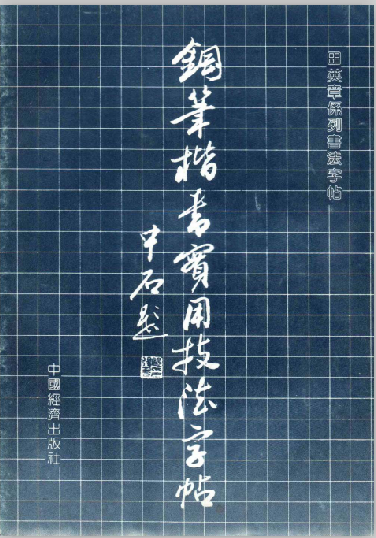 田英章係列書法字帖
鋼筆楷書實用技法字帖
中石題
中國經濟出版社